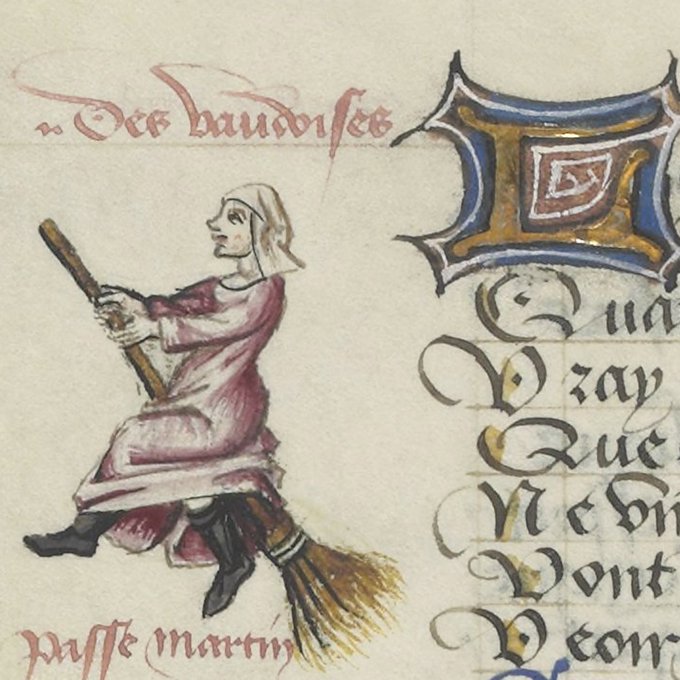 Des vaudoises
passe martin
L
Qua
Vray
Que
Ne vi
Vont
Veoir